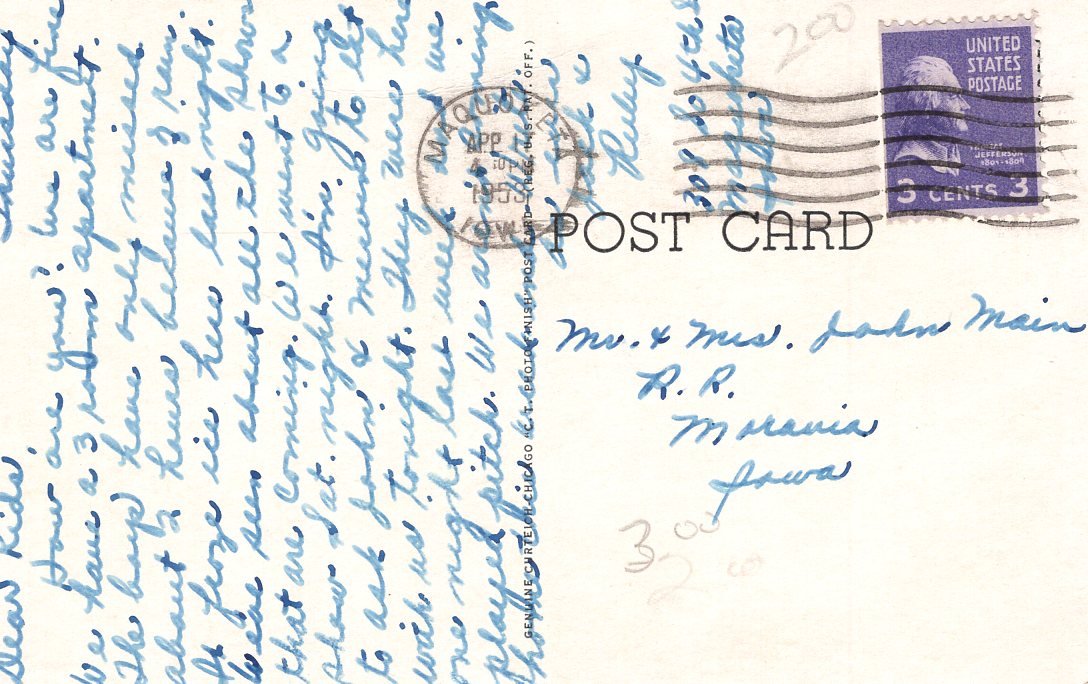 Thursday
Dear Kids,
How are you? We are fine
We have a 3 room apartment.
The boys have only missed
about 2 hours because of rain.
It froze ice here last night.
Weve seen about all the shows
that are coming. We went to a
show Sat. night. Am going
to ask John & to eat
with us tonight. They were here
one night last week and we
played pitch. We are coming
home
Jack &
Ruby
308 So 4th
Maquoketa
Iowa
GENUINE CURTEICH-CHICAGO "C.T. PHOTO-FINISH" POST CARD (REG. U.S. PAT. OFF.)
MAQUOKETA
APR
1955
IOWA
UNITED
STATES
POSTAGE
JEFFERSON
1801-1809
3 CENTS 3
POST CARD
Mr. & Mrs. John Main
R. R.
Moravia
Iowa
200
300
2